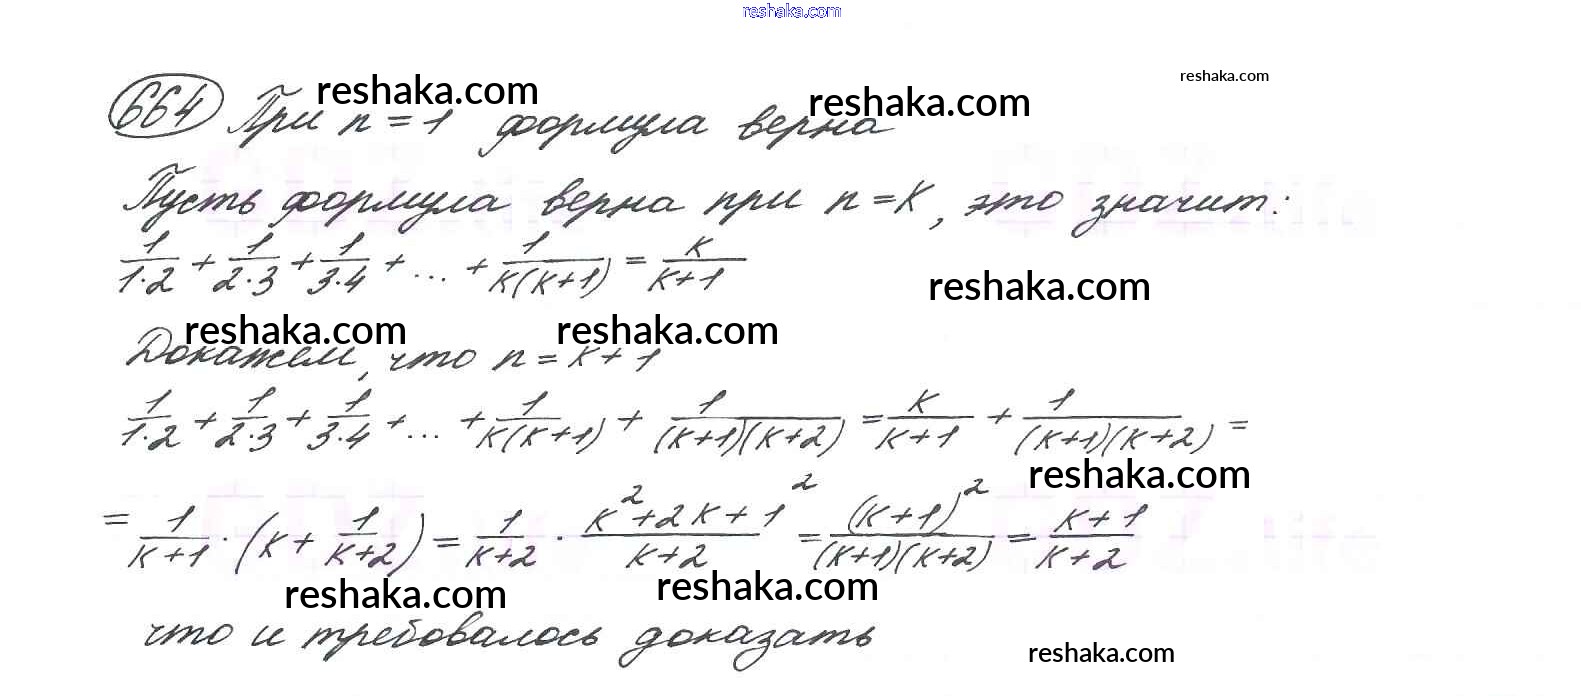 reshaka.com
reshaka.com
reshaka.com
reshaka.com
664 При n = 1 формула верна
Пусть формула верна при n = K, это значит:
1/(1·2) + 1/(2·3) + 1/(3·4) + ... + 1/(K(K+1)) = K/(K+1)
reshaka.com
reshaka.com
reshaka.com
Докажем, что n = K + 1
1/(1·2) + 1/(2·3) + 1/(3·4) + ... + 1/(K(K+1)) + 1/((K+1)(K+2)) = K/(K+1) + 1/((K+1)(K+2)) =
reshaka.com
= 1/(K+1) · (K + 1/(K+2)) = 1/(K+2) · (K²+2K+1²)/(K+2) = (K+1)²/((K+1)(K+2)) = (K+1)/(K+2)
reshaka.com
reshaka.com
что и требовалось доказать
reshaka.com